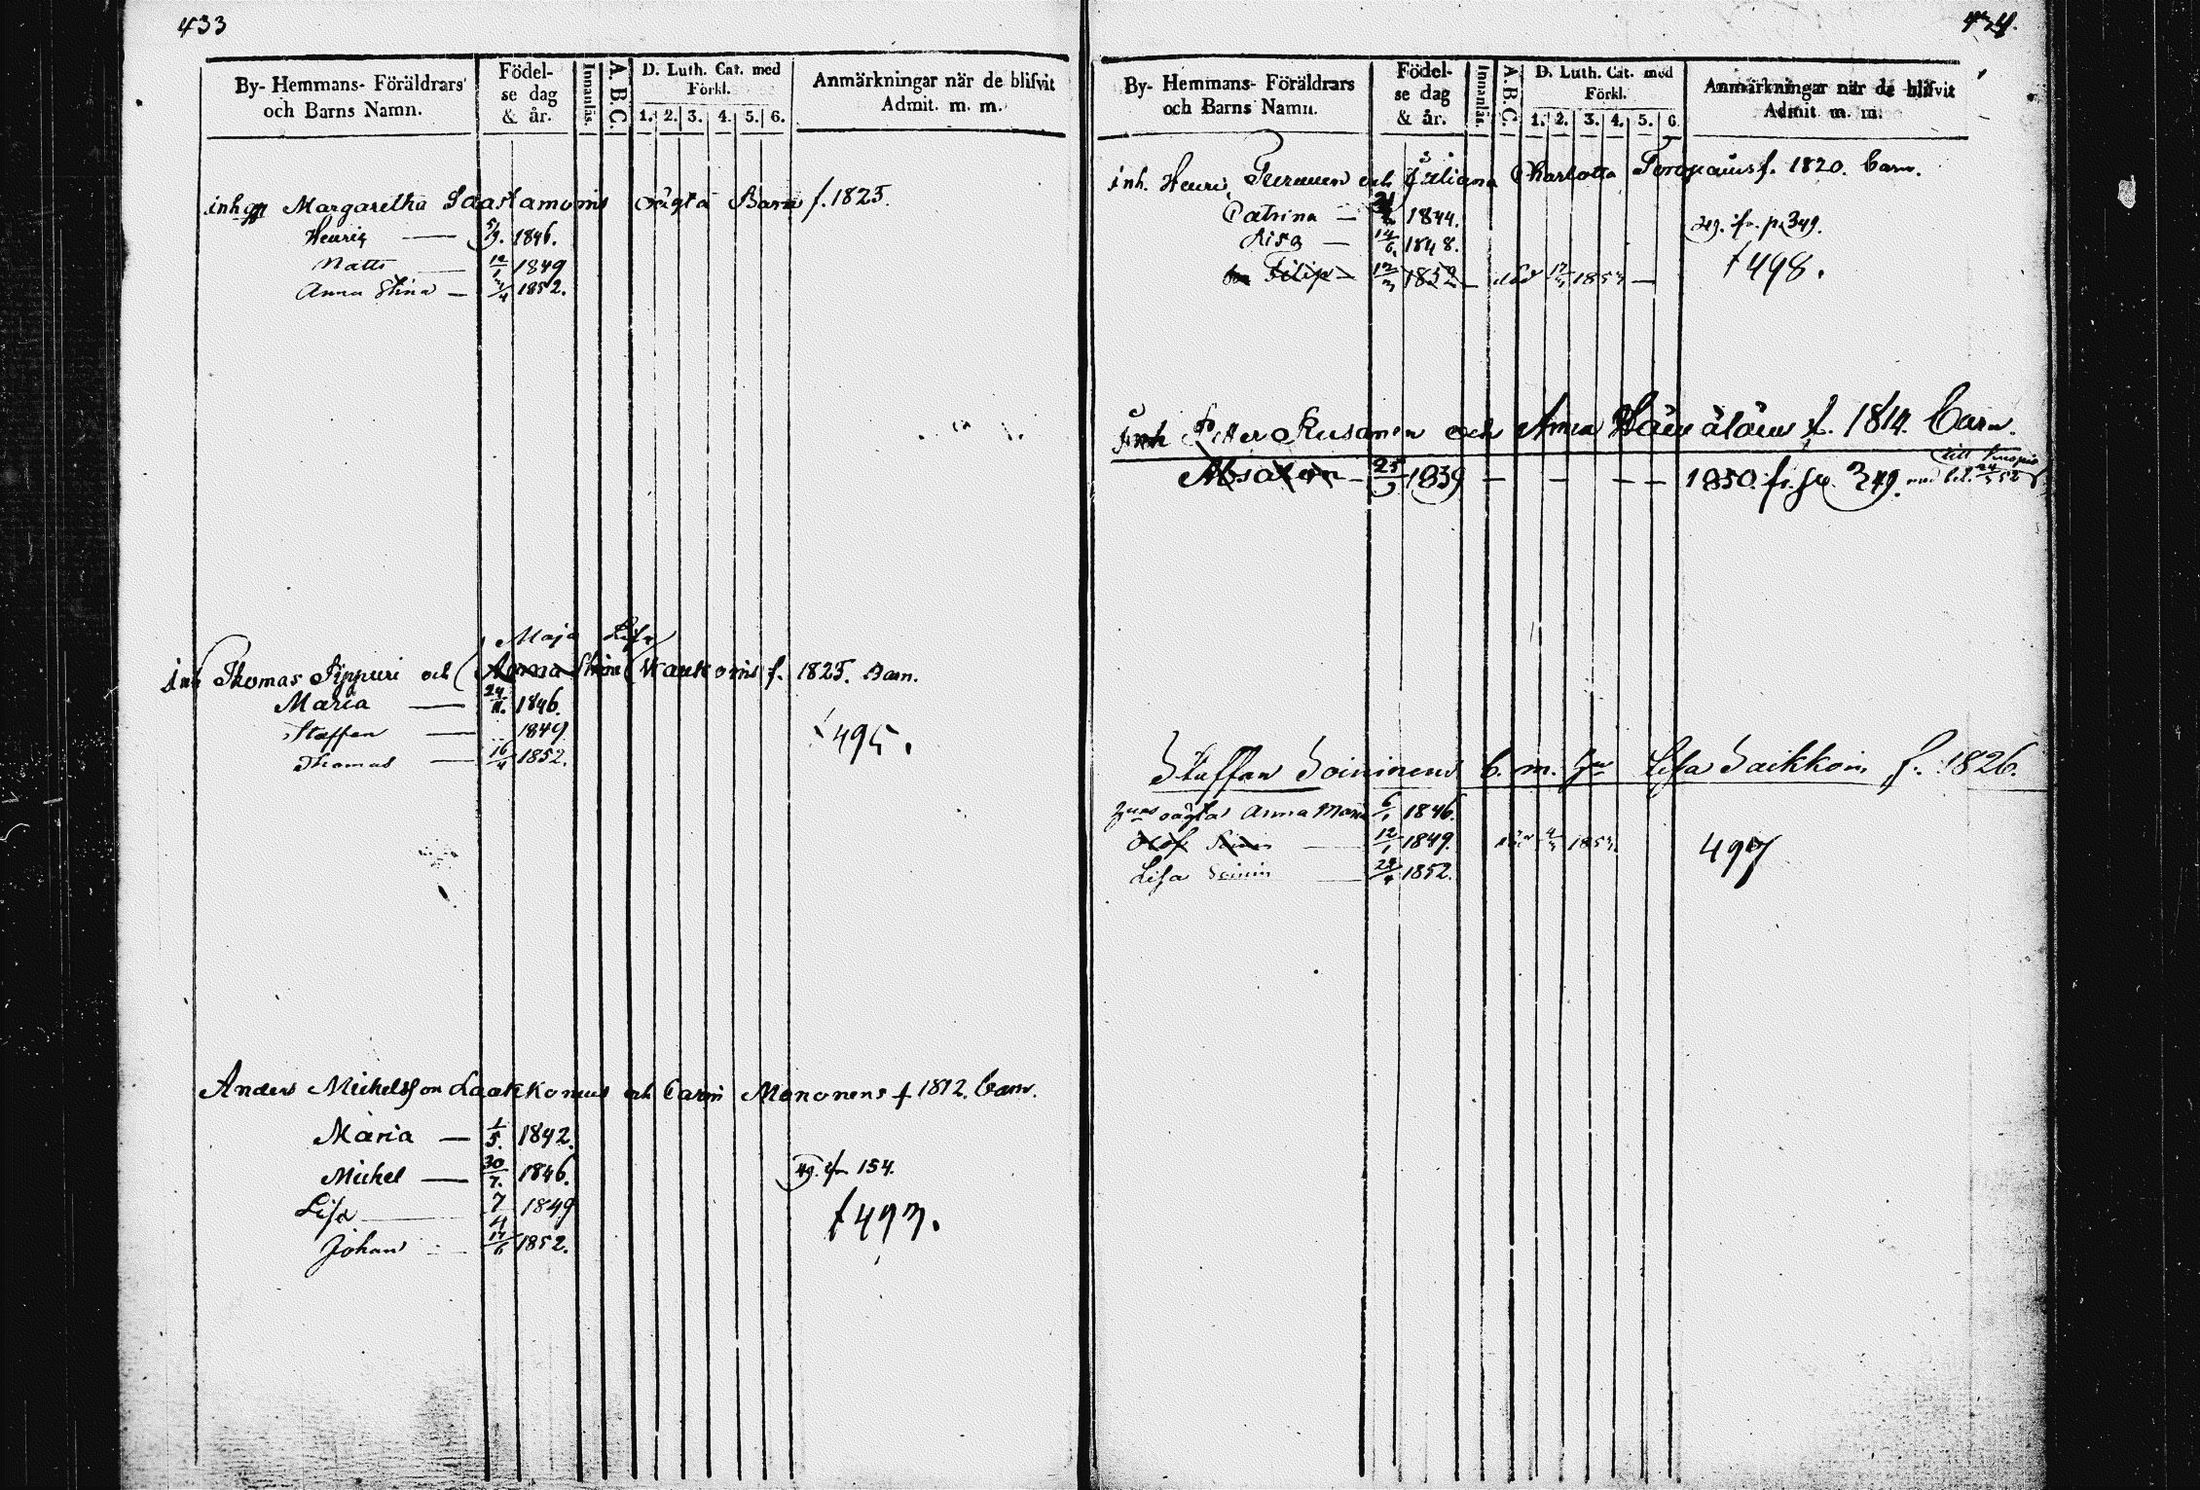 433
By- Hemmans- Föräldrars
och Barns Namn.
Födel-
se dag
& år.
Innanläs.
A.B.C.
D. Luth. Cat. med
Förkl.
1. 2. 3. 4. 5. 6.
Anmärkningar när de blifvit
Admit. m. m.
inh Margaretha Saastamoinis oägta Barn f. 1825.
Henric — 5/9. 1846.
Matts — 12/1 1849
Anna Stina — 4 1852.
Maja Lisa
inh Thomas Pippuri och Anna Stina Kaukonis f. 1825. Barn.
Maria — 24/11. 1846.
Staffan — 1849
Thomas — 16/4 1852.
495.
Anders Michelsson Laakkonens och Carin Monenens f 1812. Barn.
Maria — 1/5. 1842.
Michel — 30/7. 1846.
fr 154.
Lisa — 7/4 1849
Johan — 17/6 1852.
t 493.
434.
By- Hemmans- Föräldrars
och Barns Namn.
Födel-
se dag
& år.
Innanläs.
A.B.C.
D. Luth. Cat. med
Förkl.
1. 2. 3. 4. 5. 6.
Anmärkningar när de blifvit
Admit. m. m.
inh. Henric och Juliana Charlotta f. 1820. Barn.
Catrina — 1844.
fr. p. 349.
Lisa — 14/6. 1848.
t 498.
Filip — 12/3 1852 — död 17/3 1853 —
inh Petter Rusanen och Anna f. 1814. Barn.
Absalon — 25/3 1839 — — — — 1850. fr. p. 349.
Staffan Soininens b. m. hu Lisa Saikkoin f. 1826.
oägta Anna Maria 6/1 1846.
Olof — 12/1 1849.
497
Lisa Soinin — 28/4 1852.